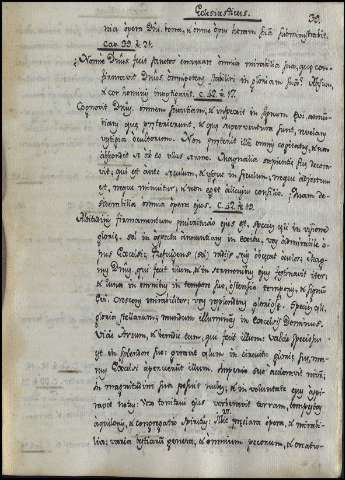 Eclesiasticus.
nia opera Dni. bona, & omne opus horam suã subministrabit.
Cap. 39 à 21.
Nonne Dnus fecit Sanctos enarrare omnia mirabilia sua, quę con-
firmavit Dnus omnipotens, stabiliri in gloriam suã? Abyssum,
& cor hominum investigavit. c. 42. à 17.
Cognovit Dnus. omnem scientiam, & inspexit in signum ęvi, annun-
tians quę pręterierunt, & quę superventura sunt, revelans
vestigia occultorum. Non pręterit illũ omnis cogitatus, & non
abscondit se ab eo ullus sermo. Magnalia sapientię suę decora-
vit; qui est ante sęculum, & usque in sęculum; neque adjectum
est, neque minuitur, & non eget alicujus consilio. Quam de-
siderabilia omnia opera ejus. c. 42. à 19.
Altitudinis firmamentum pulchritudo ejus est, species cęli in visione
glorię. Sol in aspectu annuntians in exitu, vas admirabile o-
pus Excelsi; Refulgens radiis suis obcęcat oculos; magnus
Dnus, qui fecit illum, & in sermonibus ejus festinavit iter;
& luna in omnibus in tempore suo, ostensio temporis, & signum
ęvi. Crescens mirabiliter; resplendens gloriose. Species cęli,
gloria stellarum; mundum illuminans in Excelsis Dominus.
Vide Arcum, & benedic eum, qui fecit illum: valde speciosus
est in splendore suo: gyravit cęlum in circuitu glorię suę, ma-
nus Excelsi aperuerunt illum. Imperio suo acceleravit nivem;
in magnitudine sua posuit nubes; & in voluntate ejus aspi-
rabit notus: Vox tonitrui ejus verberavit terram, tempestas
aquilonis, & congregatio spiritus; Illic pręclara opera, & mirabi-
lia; varia bestiarum genera, & omnium pecorum, & creatu-